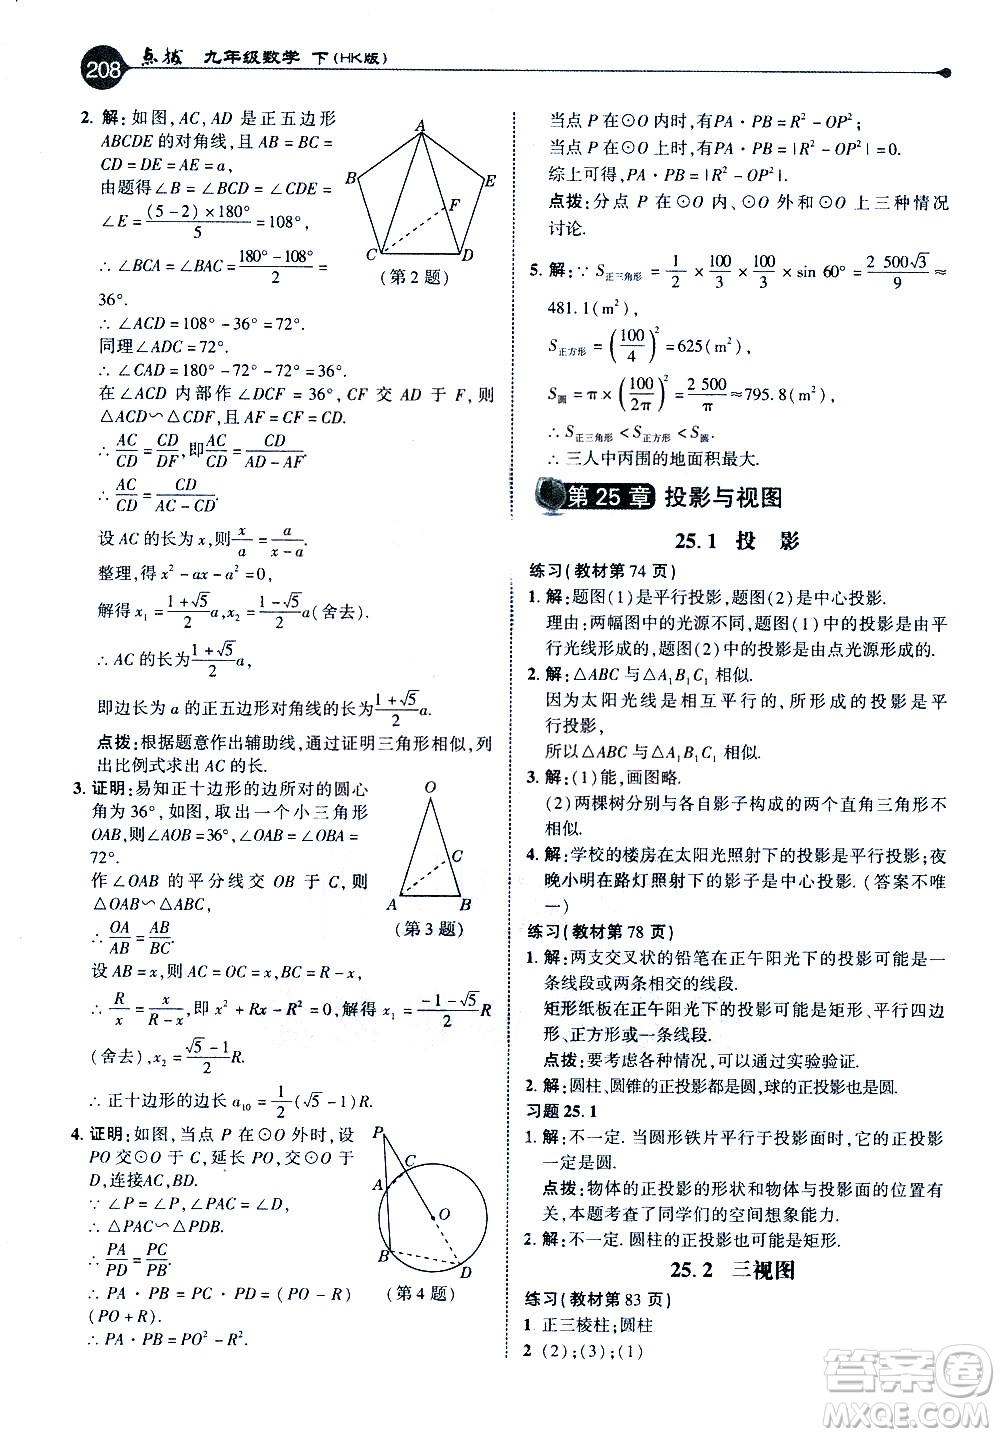 208 点拨 九年级数学 下(HK版)
2. 解:如图, AC, AD 是正五边形
ABCDE 的对角线,且 AB = BC =
CD = DE = AE = a,
由题得∠B = ∠BCD = ∠CDE =
∠E = (5-2)×180°/5 = 108°,
∴ ∠BCA = ∠BAC = 180°-108°/2 =
36°.
∴ ∠ACD = 108° - 36° = 72°.
同理∠ADC = 72°.
∴ ∠CAD = 180° - 72° - 72° = 36°.
在∠ACD 内部作∠DCF = 36°, CF 交 AD 于 F, 则
△ACD∽△CDF,且 AF = CF = CD.
∴ AC/CD = CD/DF, 即 AC/CD = CD/(AD - AF).
∴ AC/CD = CD/(AC - CD)
设 AC 的长为 x,则 x/a = a/(x-a).
整理,得 x² - ax - a² = 0,
解得 x₁ = (1+√5)/2 a, x₂ = (1-√5)/2 a(舍去).
∴ AC 的长为 (1+√5)/2 a,
即边长为 a 的正五边形对角线的长为 (1+√5)/2 a.
点拨:根据题意作出辅助线,通过证明三角形相似,列
出比例式求出 AC 的长.
A
B
E
F
C
D
(第 2 题)
3. 证明:易知正十边形的边所对的圆心
角为36°,如图,取出一个小三角形
OAB,则∠AOB = 36°, ∠OAB = ∠OBA =
72°.
作∠OAB 的平分线交 OB 于 C,则
△OAB∽△ABC,
∴ OA/AB = AB/BC.
设 AB = x,则 AC = OC = x, BC = R - x,
∴ R/x = x/(R-x), 即 x² + Rx - R² = 0, 解得 x₁ = (-1-√5)/2 R
(舍去), x₂ = (√5-1)/2 R.
∴ 正十边形的边长 a₁₀ = 1/2(√5 - 1)R.
O
C
A
B
(第 3 题)
4. 证明:如图,当点 P 在⊙O 外时,设
PO 交⊙O 于 C,延长 PO,交⊙O 于
D,连接AC,BD.
∵ ∠P = ∠P, ∠PAC = ∠D,
∴ △PAC∽△PDB.
∴ PA/PD = PC/PB.
∴ PA · PB = PC · PD = (PO - R)
(PO + R).
∴ PA · PB = PO² - R².
P
A
C
O
B
D
(第 4 题)
当点 P 在⊙O 内时,有PA · PB = R² - OP²;
当点 P 在⊙O 上时,有PA · PB = |R² - OP²| = 0.
综上可得,PA · PB = |R² - OP²|.
点拨:分点 P 在⊙O 内、⊙O 外和⊙O 上三种情况
讨论.
5. 解:∵ S正三角形 = 1/2 × 100/3 × 100/3 × sin 60° = 2 500√3/9 ≈
481.1(m²),
S正方形 = (100/4)² = 625(m²),
S圆 = π × (100/2π)² = 2 500/π ≈ 795.8(m²),
∴ S正三角形 < S正方形 < S圆.
∴ 三人中丙围的地面积最大.
第 25 章 投影与视图
25.1 投 影
练习(教材第 74 页)
1. 解:题图(1)是平行投影,题图(2)是中心投影.
理由:两幅图中的光源不同,题图(1)中是由平
行光线形成的,题图(2)中的投影是由点光源形成的.
2. 解:△ABC 与△A₁B₁C₁ 相似.
因为太阳光线是相互平行的,所形成的投影是平
行投影,
所以△ABC 与△A₁B₁C₁ 相似.
3. 解:(1)能,画图略.
(2)两棵树分别与各自影子构成的两个直角三角形不
相似.
4. 解:学校的楼房在太阳光照射下的投影是平行投影;夜
晚小明在路灯照射下的影子是中心投影. (答案不唯
一)
练习(教材第 78 页)
1. 解:两支交叉状的铅笔在正午阳光下的投影可能是一
条线段或两条相交的线段.
矩形纸板在正午阳光下的投影可能是矩形、平行四边
形、正方形或一条线段.
点拨:要考虑各种情况,可通过实验验证.
2. 解:圆柱、圆锥的正投影都是圆,球的正投影也是圆.
习题 25.1
1. 解:不一定. 当圆形铁片平行于投影面时,它的正投影
一定是圆.
点拨:物体的正投影的形状和物体与投影面的位置有
关,本题考查了同学们的空间想象能力.
2. 解:不一定. 圆柱的正投影也可能是矩形.
25.2 三视图
练习(教材第 83 页)
1 正三棱柱;圆柱
2 (2);(3);(1)
答案圈
MXQE.COM